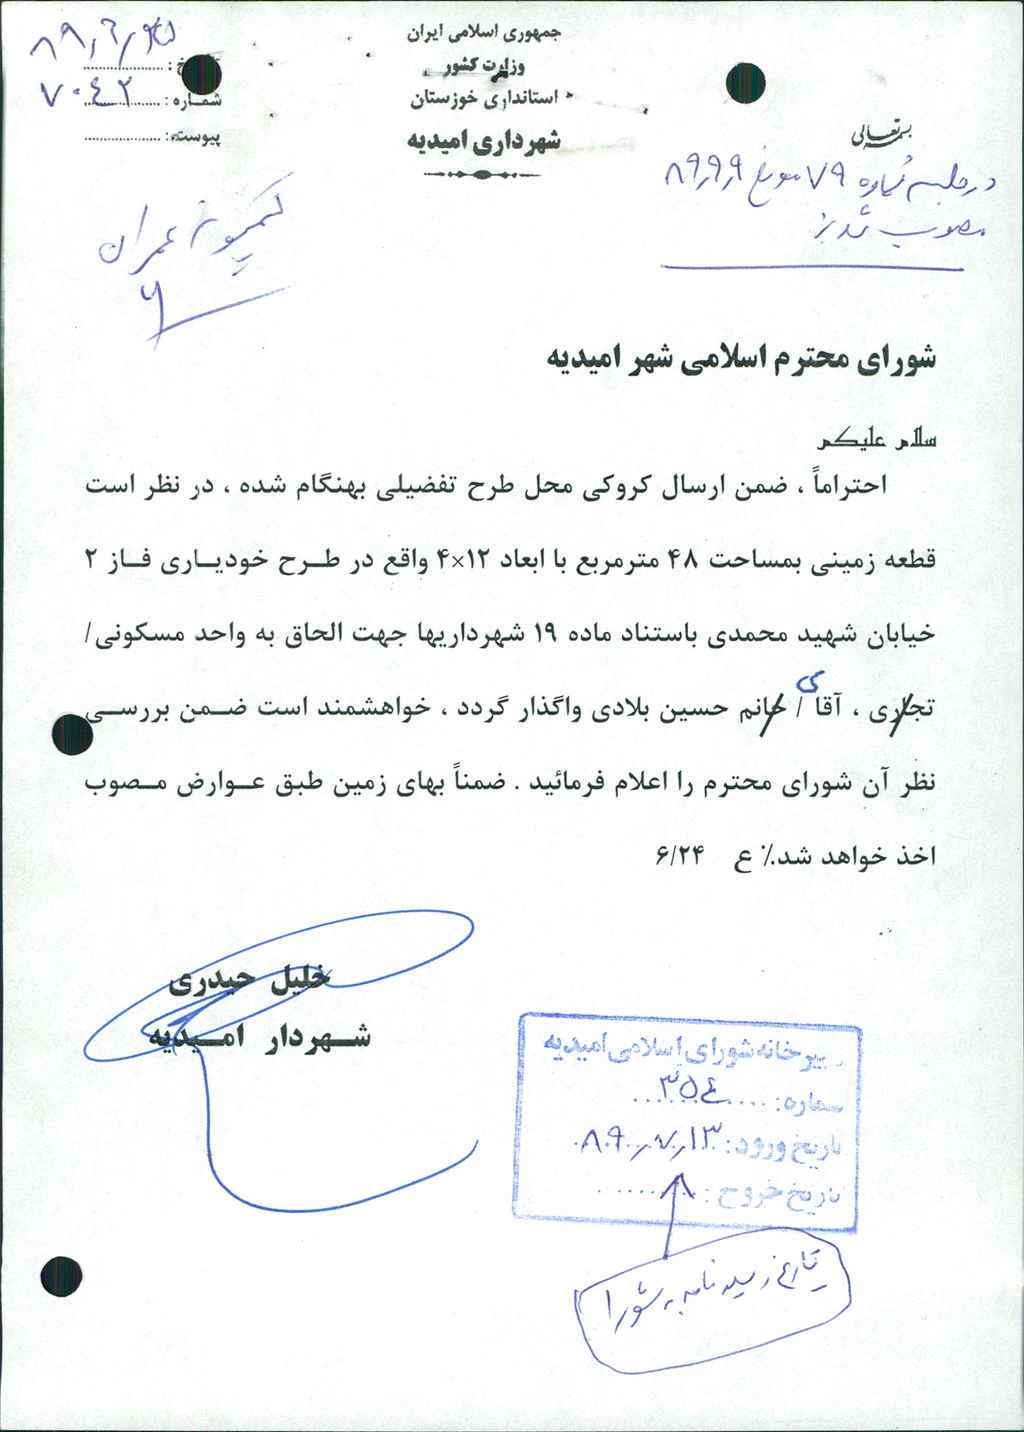 جمهوری اسلامی ایران
وزارت کشور
استانداری خوزستان
شهرداری امیدیه
تاریخ: ۸۹/۶/۲۵
شماره: ۷۰۴۲
پیوست:
بسمه تعالی
در جلسه شماره ۷۹ مورخ ۸۹/۹/۹
مصوب شد
کمیسیون عمران
شورای محترم اسلامی شهر امیدیه
سلام علیکم
احتراماً ، ضمن ارسال کروکی محل طرح تفضیلی بهنگام شده ، در نظر است
قطعه زمینی بمساحت ۴۸ مترمربع با ابعاد ۱۲×۴ واقع در طرح خودیاری فاز ۲
خیابان شهید محمدی باستناد ماده ۱۹ شهرداریها جهت الحاق به واحد مسکونی/
تجاری ، آقای / خانم حسین بلادی واگذار گردد ، خواهشمند است ضمن بررسی
نظر آن شورای محترم را اعلام فرمائید . ضمناً بهای زمین طبق عوارض مصوب
اخذ خواهد شد٪ ع ۶/۲۴
خلیل حیدری
شهردار امیدیه
دبیرخانه شورای اسلامی امیدیه
شماره: ۳۵۴
تاریخ ورود: ۸۹/۷/۱۳
تاریخ خروج:
تاریخ رسید نامه به شورا